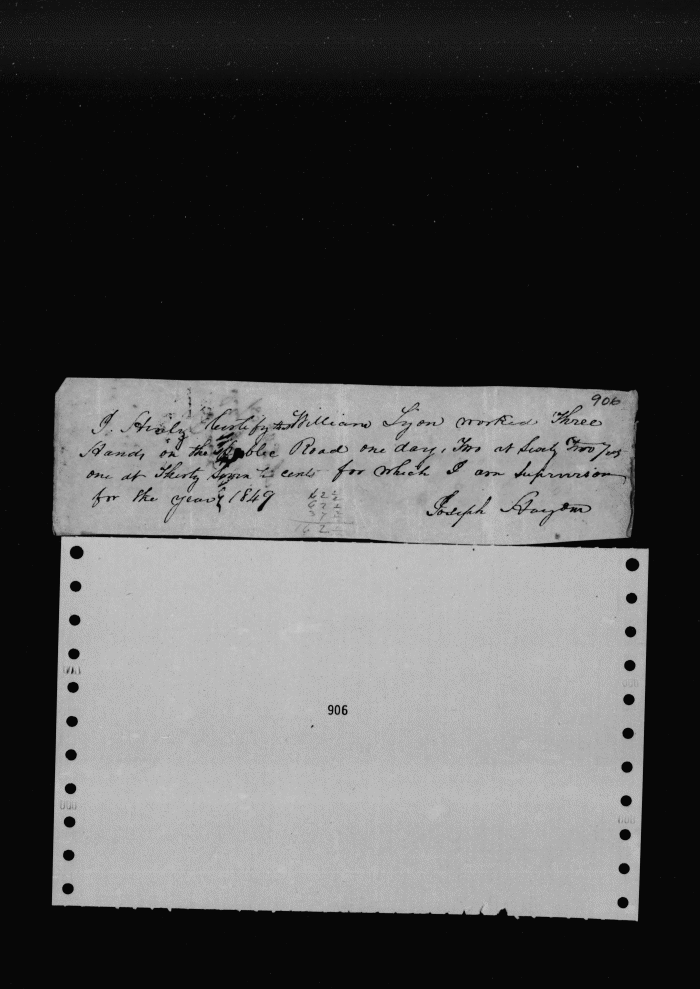 906
I. Hearby Certify William Lyon worked Three
Hands on the Public Road one day, Two at Sixty Two
one at Thirty Seven ½ cents for which I am Supervisor
for the year 1849
62½
62½
37½
162½
Joseph
906